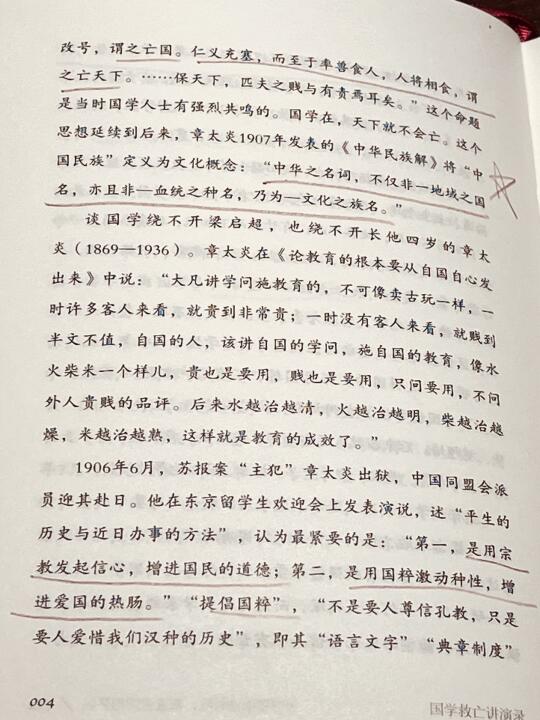 改号，谓之亡国。仁义充塞，而至于率兽食人，人将相食，谓
之亡天下。……保天下，匹夫之贱与有责焉耳矣。”这个命题
是当时国学人士有强烈共鸣的。国学在，天下就不会亡。这个
思想延续到后来，章太炎1907年发表的《中华民族解》将“中
国民族”定义为文化概念：“中华之名词，不仅非一地域之国
名，亦且非一血统之种名，乃为一文化之族名。”
谈国学绕不开梁启超，也绕不开长他四岁的章太
炎（1869—1936）。章太炎在《论教育的根本要从自国自心发
出来》中说：“大凡讲学问施教育的，不可像卖古玩一样，一
时许多客人来看，就贵到非常贵；一时没有客人来看，就贱到
半文不值，自国的人，该讲自国的学问，施自国的教育，像水
火柴米一个样儿，贵也是要用，贱也是要用，只问要用，不问
外人贵贱的品评。后来水越治越清，火越治越明，柴越治越
燥，米越治越熟，这样就是教育的成效了。”
1906年6月，苏报案“主犯”章太炎出狱，中国同盟会派
员迎其赴日。他在东京留学生欢迎会上发表演说，述“平生的
历史与近日办事的方法”，认为最紧要的是：“第一，是用宗
教发起信心，增进国民的道德；第二，是用国粹激动种性，增
进爱国的热肠。”“提倡国粹”，“不是要人尊信孔教，只是
要人爱惜我们汉种的历史”，即其“语言文字”“典章制度”
004
国学救亡讲演录